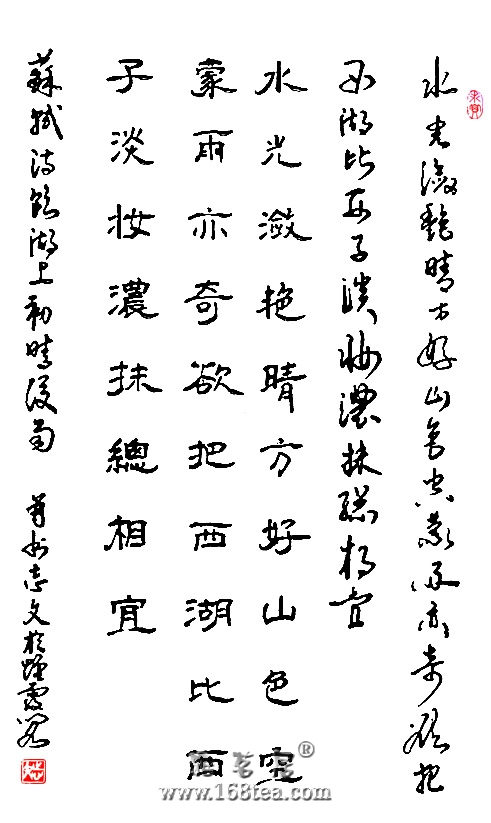 水光潋艳晴方好山色空蒙雨亦奇欲把
西湖比西子淡妆濃抹總相宜
水光潋艳晴方好山色空
蒙雨亦奇欲把西湖比西
子淡妆濃抹總相宜
蘇軾詩飲湖上初晴後雨 志文於
®
www.168tea.com